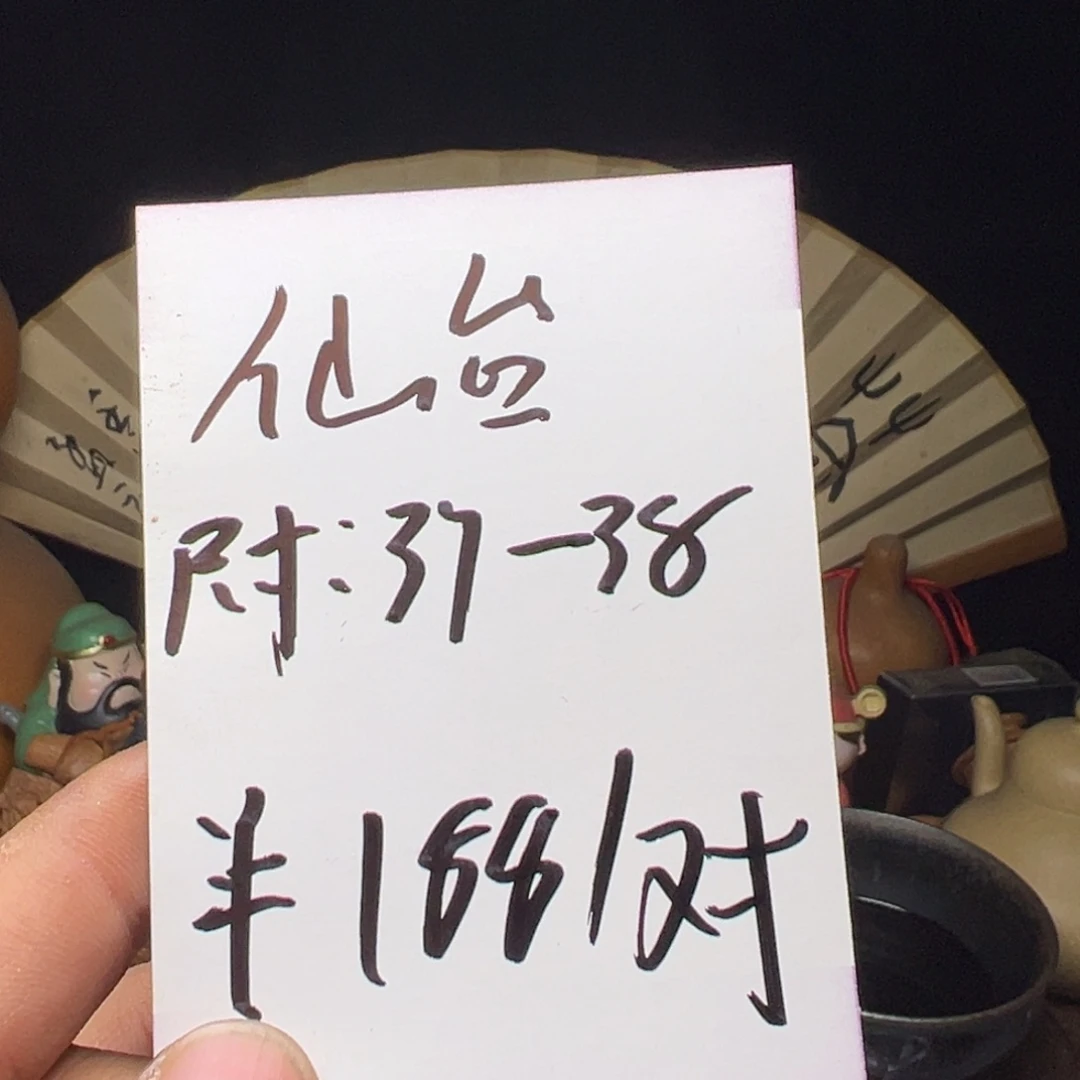 仙台
尉:37-38
¥188/对